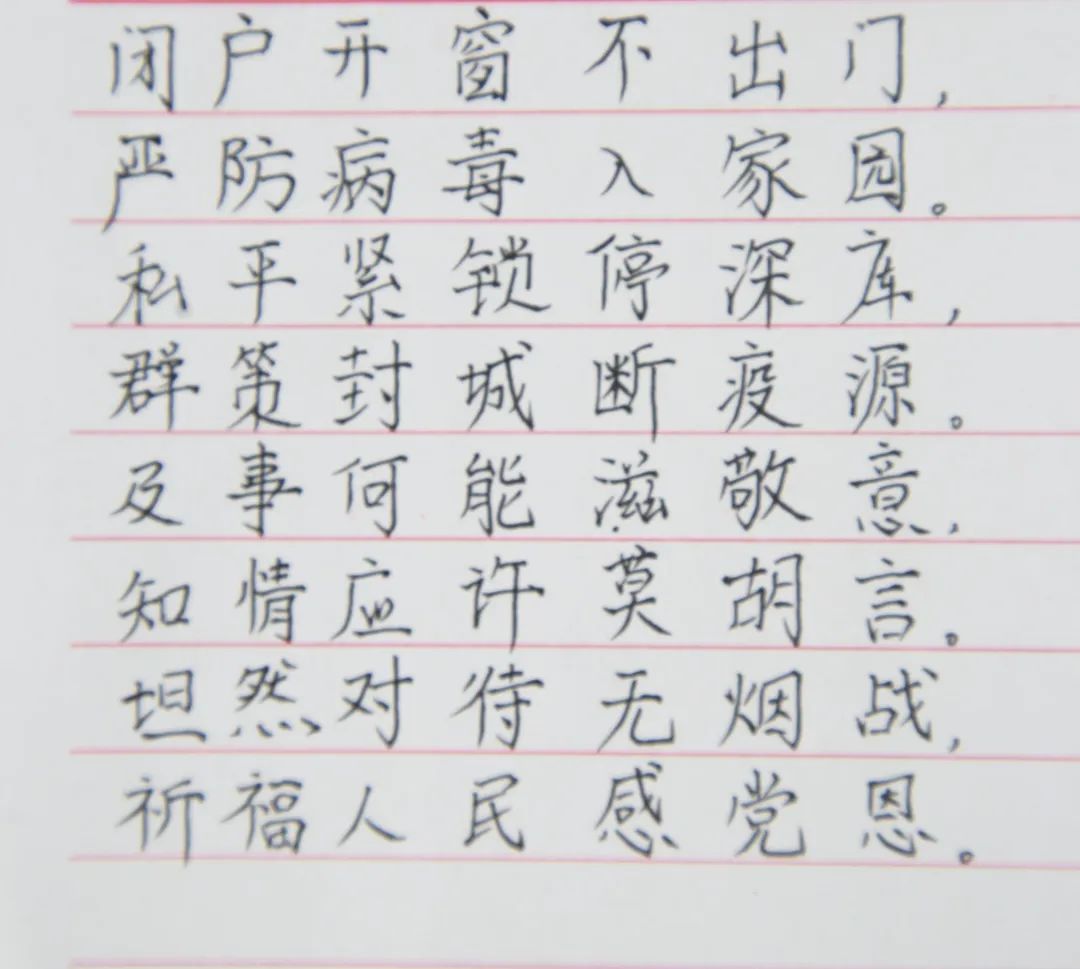 闭户开窗不出门,
严防病毒入家园。
私平紧锁停深库,
群策封城断疫源。
及事何能滋敬意,
知情应许莫胡言。
坦然对待无烟战,
祈福人民感党恩。